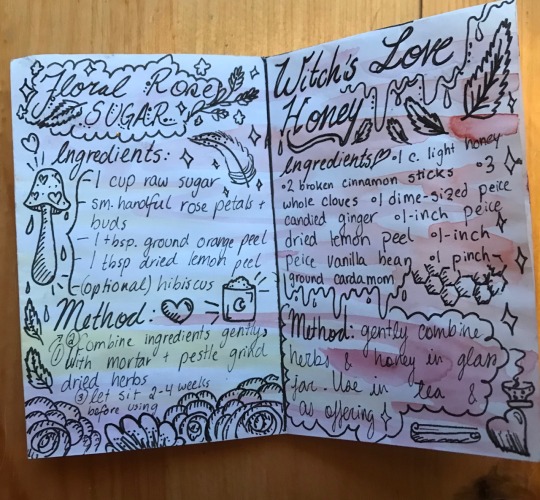 Floral Rose
SUGAR
Ingredients:
- 1 cup raw sugar
- sm. handful rose petals +
buds
- 1 tbsp. ground orange peel
- 1 tbsp dried lemon peel
- (optional) hibiscus
Method:
② Combine ingredients gently,
① with mortar + pestle grind
dried herbs
③ let sit 2-4 weeks
before using
Witch's Love
Honey
Ingredients °1 c. light honey
°2 broken cinnamon sticks °3
whole cloves °1 dime-sized peice
candied ginger °1-inch peice
dried lemon peel °1-inch
peice vanilla bean °1 pinch
ground cardamom
Method: gently combine
herbs & honey in glass
jar. Use in tea &
as offering